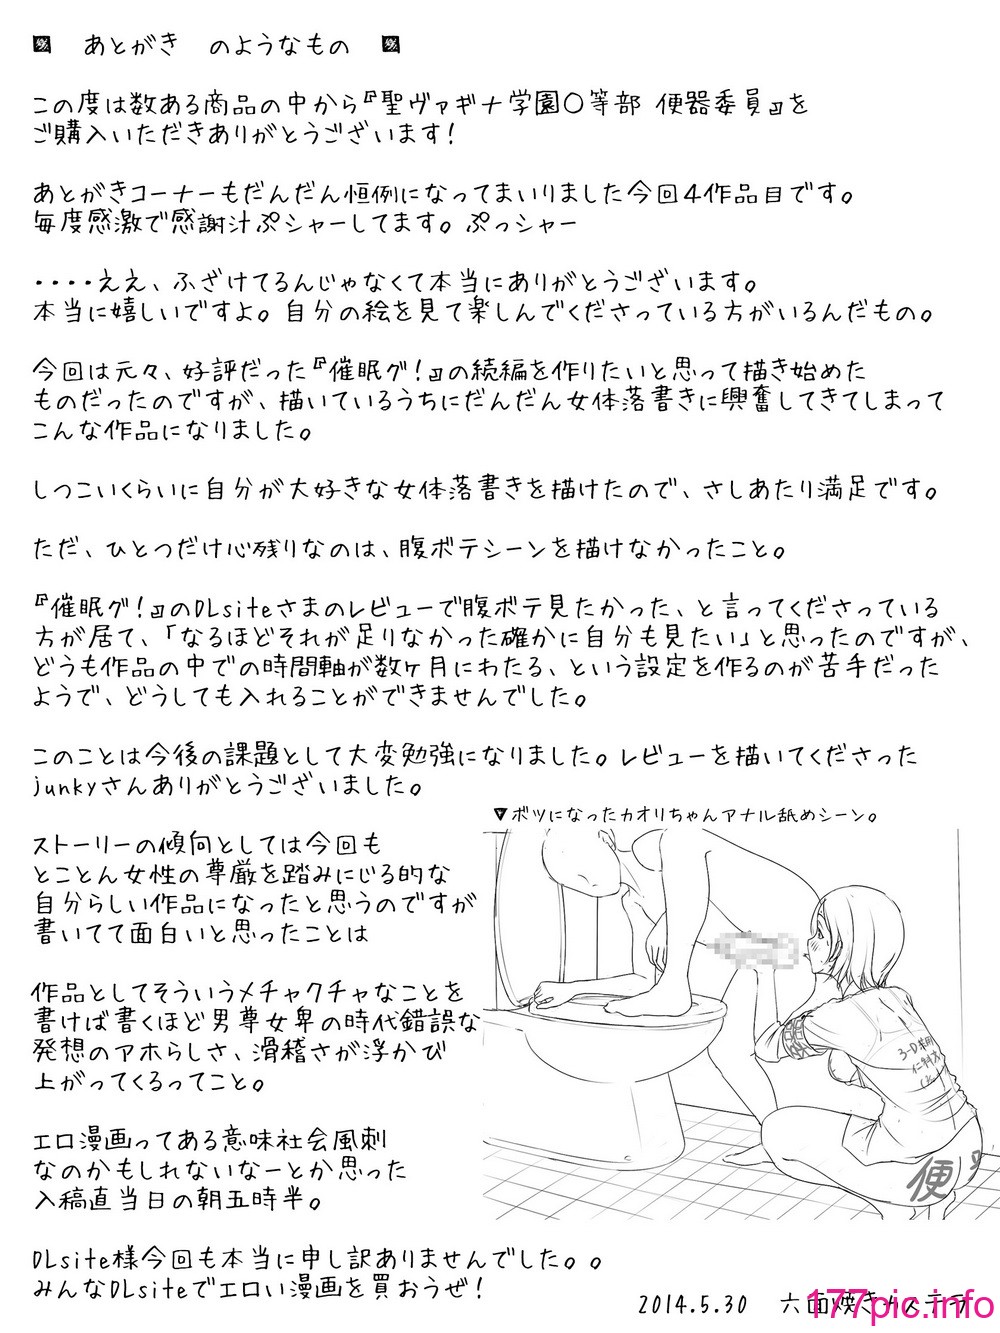 あとがき　のようなもの
この度は数ある商品の中から『聖ヴァギナ学園〇等部 便器委員』を
ご購入いただきありがとうございます！
あとがきコーナーもだんだん恒例になってまいりました今回4作品目です。
毎度感激で感謝汁ぷシャーしてます。ぷっシャー
・・・・ええ、ふざけてるんじゃなくて本当にありがとうございます。
本当に嬉しいですよ。自分の絵を見て楽しんでくださっている方がいるんだもの。
今回は元々、好評だった『催眠グ！』の続編を作りたいと思って描き始めた
ものだったのですが、描いているうちにだんだん女体落書きに興奮してきてしまって
こんな作品になりました。
しつこいくらいに自分が大好きな女体落書きを描けたので、さしあたり満足です。
ただ、ひとつだけ心残りなのは、腹ボテシーンを描けなかったこと。
『催眠グ！』のDLsiteさまのレビューで腹ボテ見たかった、と言ってくださっている
方が居て、「なるほどそれが足りなかった確かに自分も見たい」と思ったのですが、
どうも作品の中での時間軸が数ヶ月にわたる、という設定を作るのが苦手だった
ようで、どうしても入れることができませんでした。
このことは今後の課題として大変勉強になりました。レビューを描いてくださった
junkyさんありがとうございました。
▼ボツになったカオリちゃんアナル舐めシーン。
ストーリーの傾向としては今回も
とことん女性の尊厳を踏みにじる的な
自分らしい作品になったと思うのですが
書いてて面白いと思ったことは
作品としてそういうメチャクチャなことを
書けば書くほど男尊女卑の時代錯誤な
発想のアホらしさ、滑稽さが浮かび
上がってくるってこと。
エロ漫画ってある意味社会風刺
なのかもしれないなーとか思った
入稿直当日の朝五時半。
3-D
便
DLsite様今回も本当に申し訳ありませんでした。。
みんなDLsiteでエロい漫画を買おうぜ！
2014.5.30　六面焼きカステラ
177pic.info